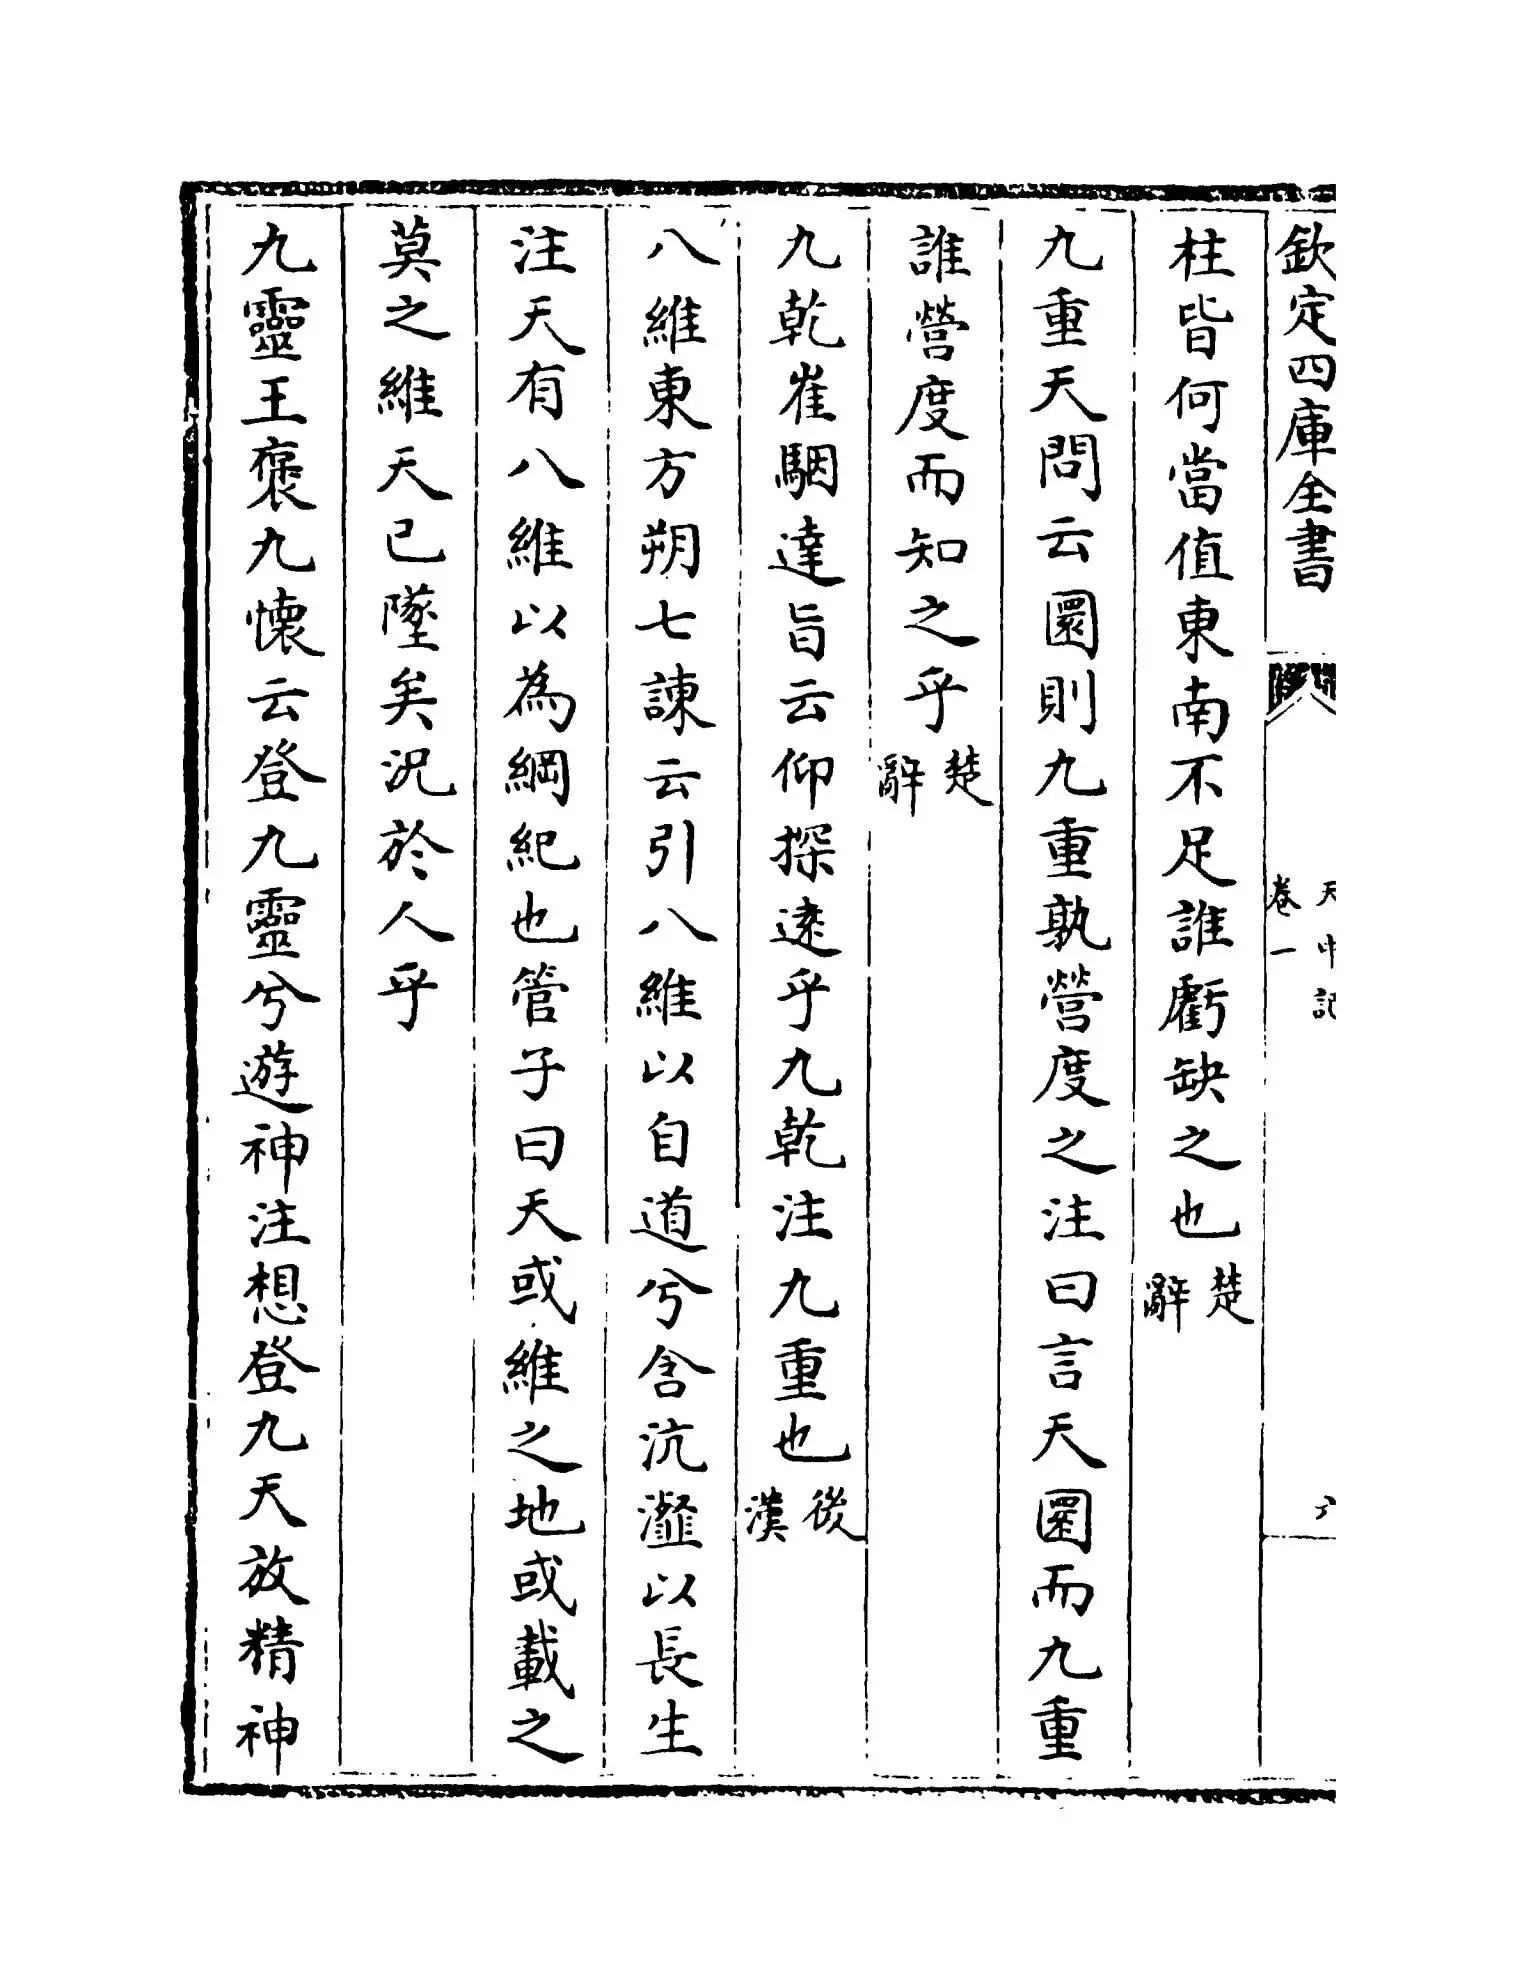 欽定四庫全書
天中記
卷一
柱皆何當值東南不足誰虧缺之也楚辭
九重天問云圜則九重孰營度之注曰言天圜而九重
誰營度而知之乎楚辭
九乾崔駰達旨云仰探逺乎九乾注九重也後漢
八維東方朔七諫云引八維以自道兮含沆瀣以長生
注天有八維以為綱紀也管子曰天或維之地或載之
莫之維天已墜矣況於人乎
九靈王褒九懷云登九靈兮遊神注想登九天放精神